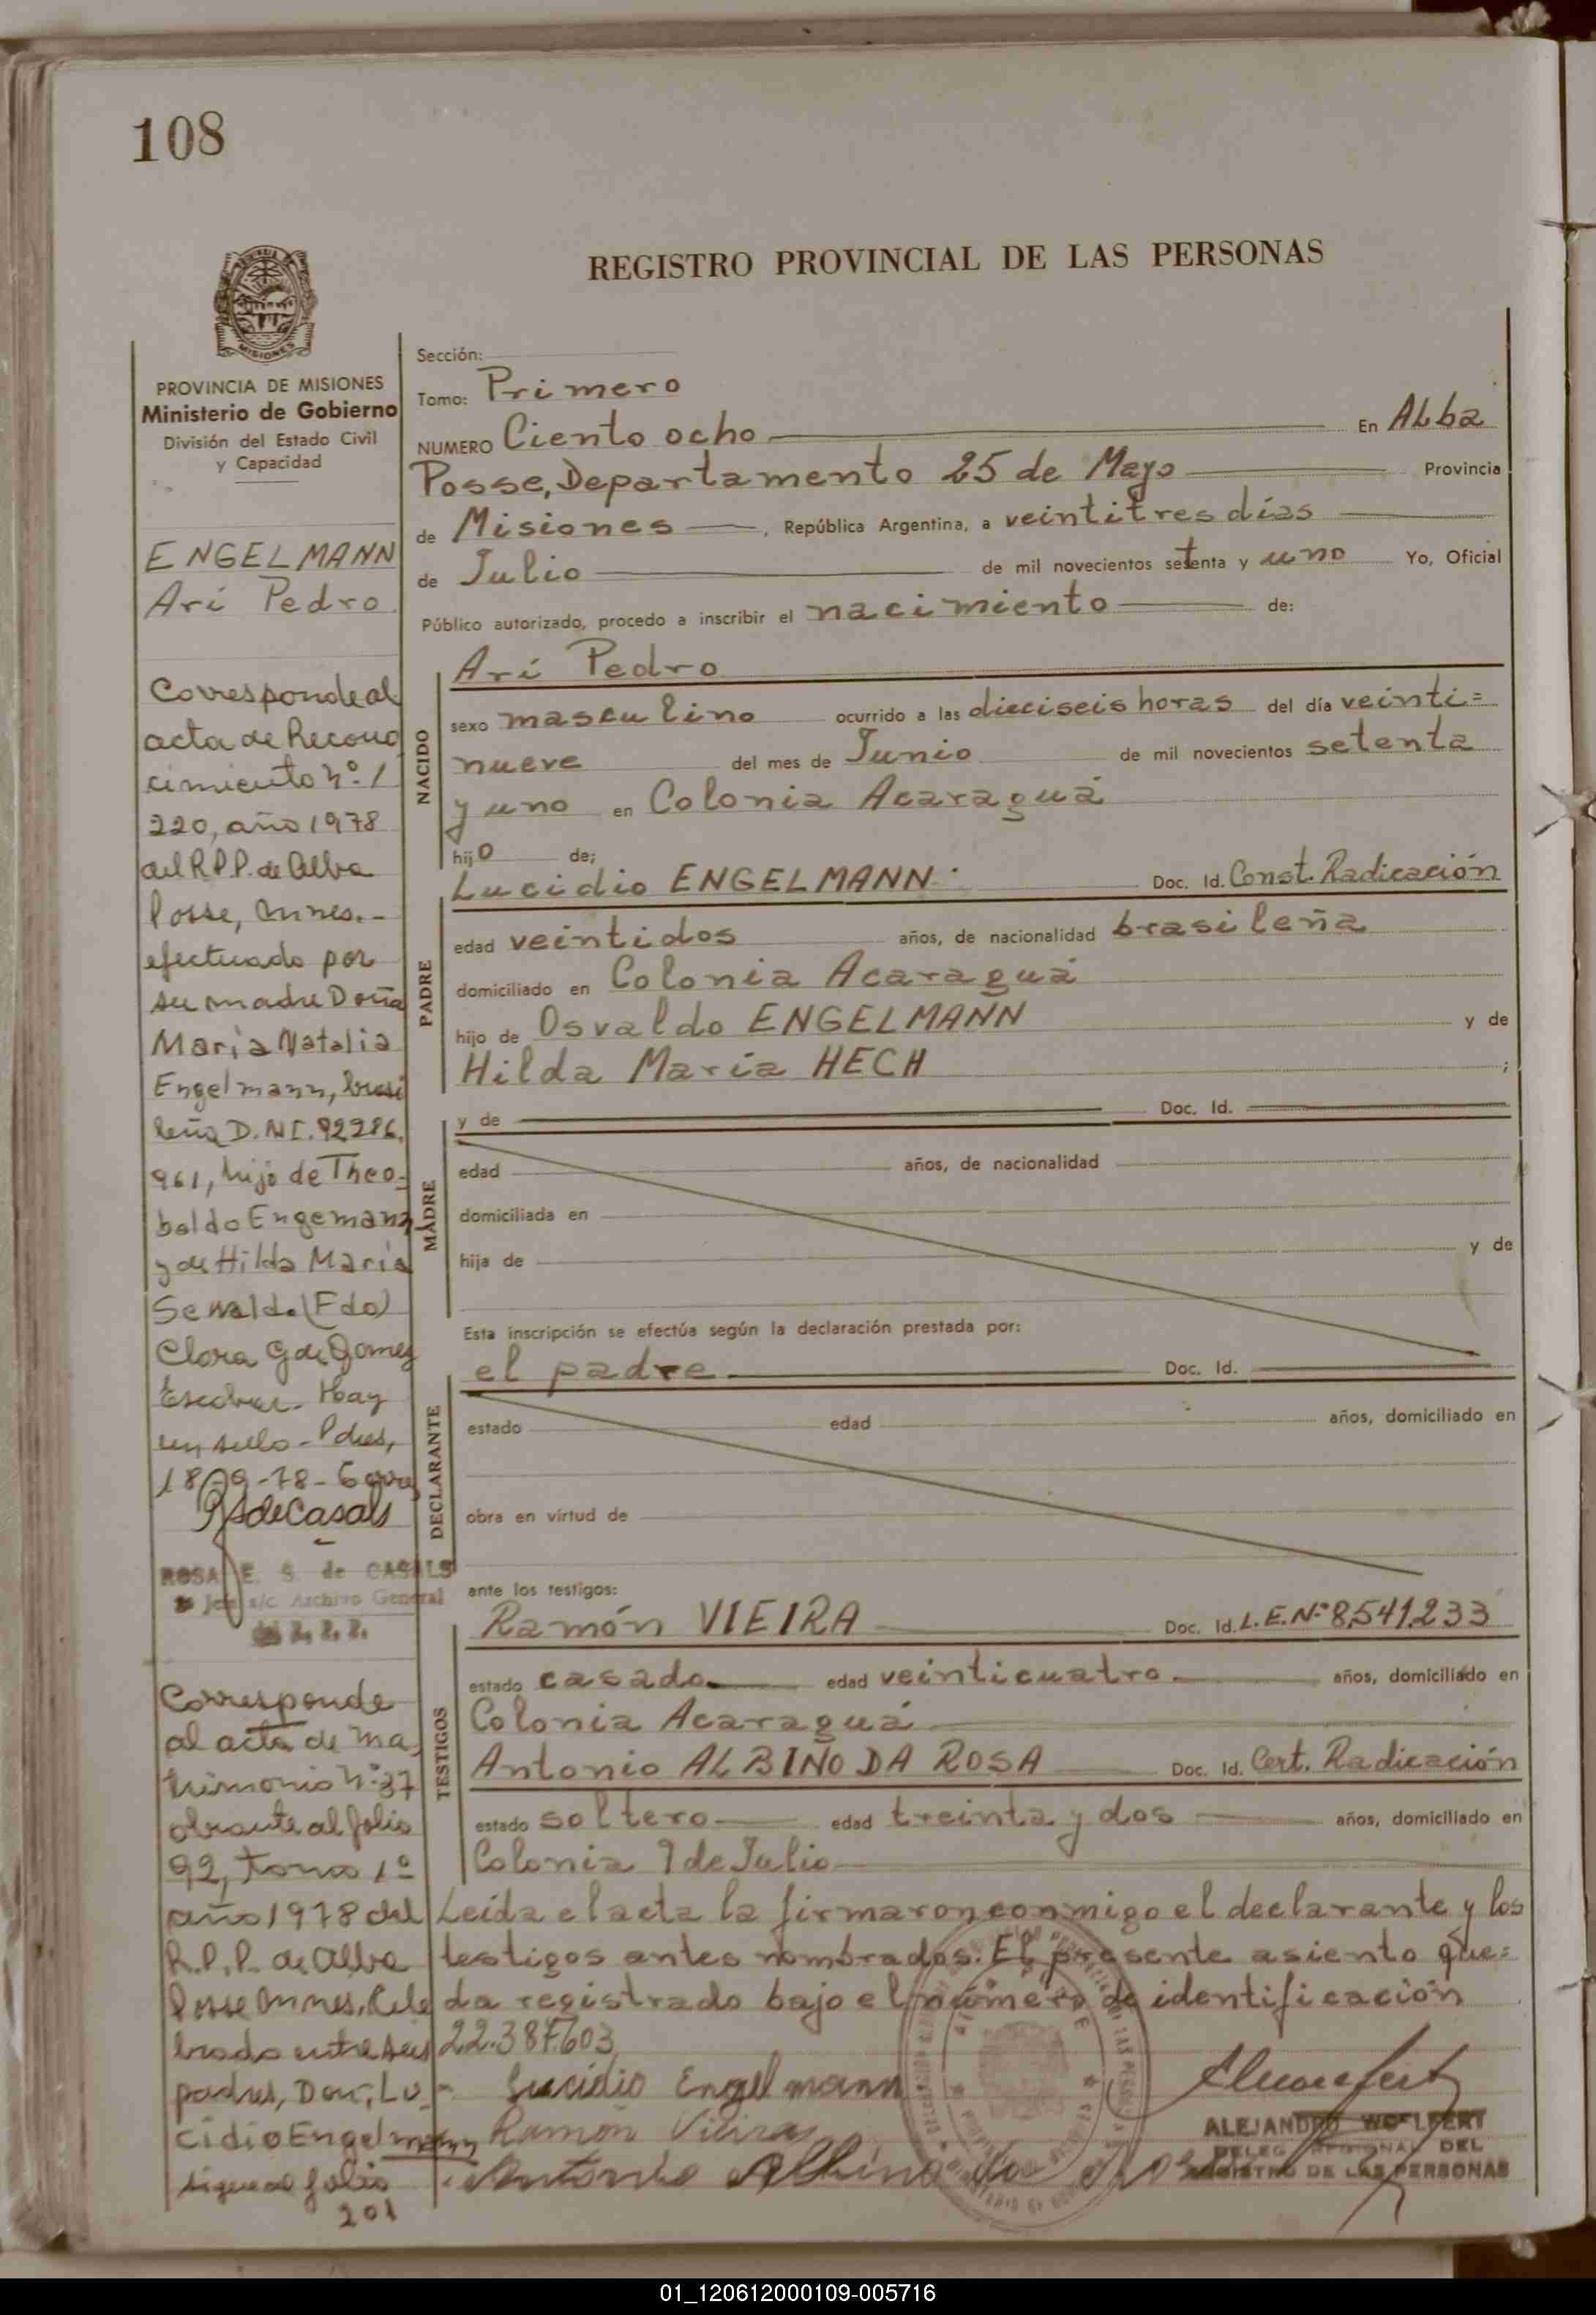 108
REGISTRO PROVINCIAL DE LAS PERSONAS
MISIONES
PROVINCIA DE MISIONES
Ministerio de Gobierno
División del Estado Civil
y Capacidad
ENGELMANN
Ari Pedro
Corresponde al
acta de Recono
cimiento nº 1
220, año 1978
del R.P.P. de Alba
Posse, Mnes.-
efectuado por
su madre Doña
María Natalia
Engelmann, brasi
leña D.N.I. 92286.
961, hija de Theo-
baldo Engemann
y de Hilda María
Sewald. (Fdo)
Clara G de Gomez
Escobar. Hay
un sello - Pdas,
18-09-78 -
RSdeCasals
ROSA E. S. de CASALS
Jefe s/c Archivo General
Corresponde
al acta de ma
trimonio nº 37
obrante al folio
92, Tomo 1º
año 1978 del
R.P.P. de Alba
Posse Mnes, Cele
brado entre sus
padres, Don; Lu-
cidio Engelmann
sigue al folio
201
Sección:
Tomo: Primero
NUMERO Ciento ocho En Alba
Posse, Departamento 25 de Mayo Provincia
de Misiones, República Argentina, a veintitres días
de Julio de mil novecientos setenta y uno Yo, Oficial
Público autorizado, procedo a inscribir el nacimiento de:
Ari Pedro
NACIDO
sexo masculino ocurrido a las dieciseis horas del día veinti=
nueve del mes de Junio de mil novecientos setenta
y uno en Colonia Acaraguá
hijo de;
Lucidio ENGELMANN Doc. Id. Const. Radicación
PADRE
edad veintidos años, de nacionalidad brasileña
domiciliado en Colonia Acaraguá
hijo de Osvaldo ENGELMANN y de
Hilda María HECH ;
MADRE
y de Doc. Id.
edad años, de nacionalidad
domiciliada en
hija de y de
Esta inscripción se efectúa según la declaración prestada por:
el padre Doc. Id.
DECLARANTE
estado edad años, domiciliado en
obra en virtud de
ante los testigos:
Ramón VIEIRA Doc. Id. L.E.Nº 8.541.233
TESTIGOS
estado casado edad veinticuatro años, domiciliado en
Colonia Acaraguá
Antonio ALBINO DA ROSA Doc. Id. Cert. Radicación
estado soltero edad treinta y dos años, domiciliado en
Colonia 9 de Julio
Leída el acta la firmaron conmigo el declarante y los
testigos antes nombrados. El presente asiento que=
da registrado bajo el número de identificación
22.387.603
Lucidio Engelmann
Ramón Vieira
Antonio Albino da Rosa
ALEJANDRO WOLFERT
DELEG. REGIONAL DEL
REGISTRO DE LAS PERSONAS
01_120612000109-005716